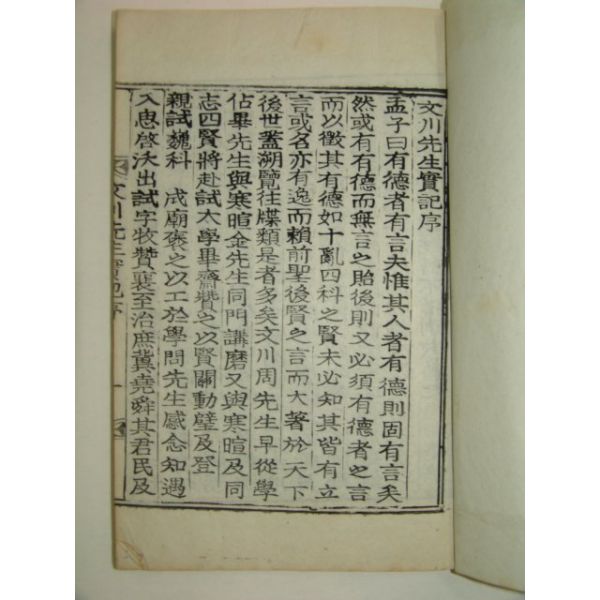 文川先生實記序
孟子曰有德者有言夫惟其人者有德則固有言矣
然或有有德而無言之貽後則又必須有德者之言
而以徵其有德如十亂四科之賢未必知其皆有立
言或名亦有逸而賴前聖後賢之言而大著於天下
後世蓋溯覽往牒類是者多矣文川周先生早從學
佔畢先生與寒暄金先生同門講磨又與寒暄及同
志四賢將赴試太學畢齋贊之以賢關動壁及登
親試魏科 成廟褒之以工於學問先生感念知遇
入思啓沃出試字牧贊襄至治庶冀堯舜其君民及
文川先生實記序 一